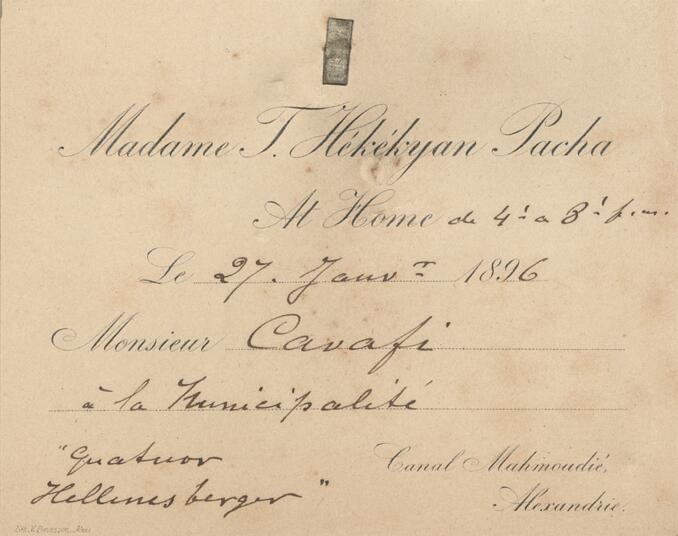 Madame T. Hékékyan Pacha
At Home de 4½ à 8½ p.m.
Le 27. Janvr 1896
Monsieur Cavafi
à la Municipalité
"Quatuor
Hellemesberger"
Canal Mahmoudié,
Alexandrie.